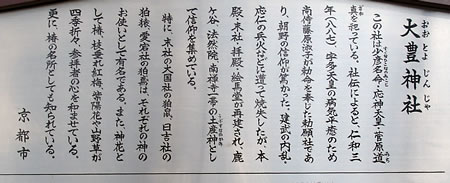 おおとよじんじゃ
大豊神社
この社は少彦名命、応神天皇、菅原道
真を祀っている。社伝によると、仁和三
年(八八七)宇多天皇の病気平癒のため
尚侍藤原淑子が勅命を奉じた勅願社であ
り、朝野の信仰が篤かった。建武の内乱・
応仁の兵火などに遭って焼失したが、本
殿、末社、拝殿、絵馬堂が再建され、鹿
ケ谷、法然院、南禅寺一帯の土産神とし
て信仰を集めている。
特に、末社の大国社の狛鼠、日吉社の
狛猿、愛宕社の狛鳶は、それぞれの神の
お使いとして有名である。また、神花と
して椿、枝垂れ紅梅、紫陽花や山野草が
四季折々、参拝者の心を和ませている。
更に、椿の名所としても知られている。
京都市